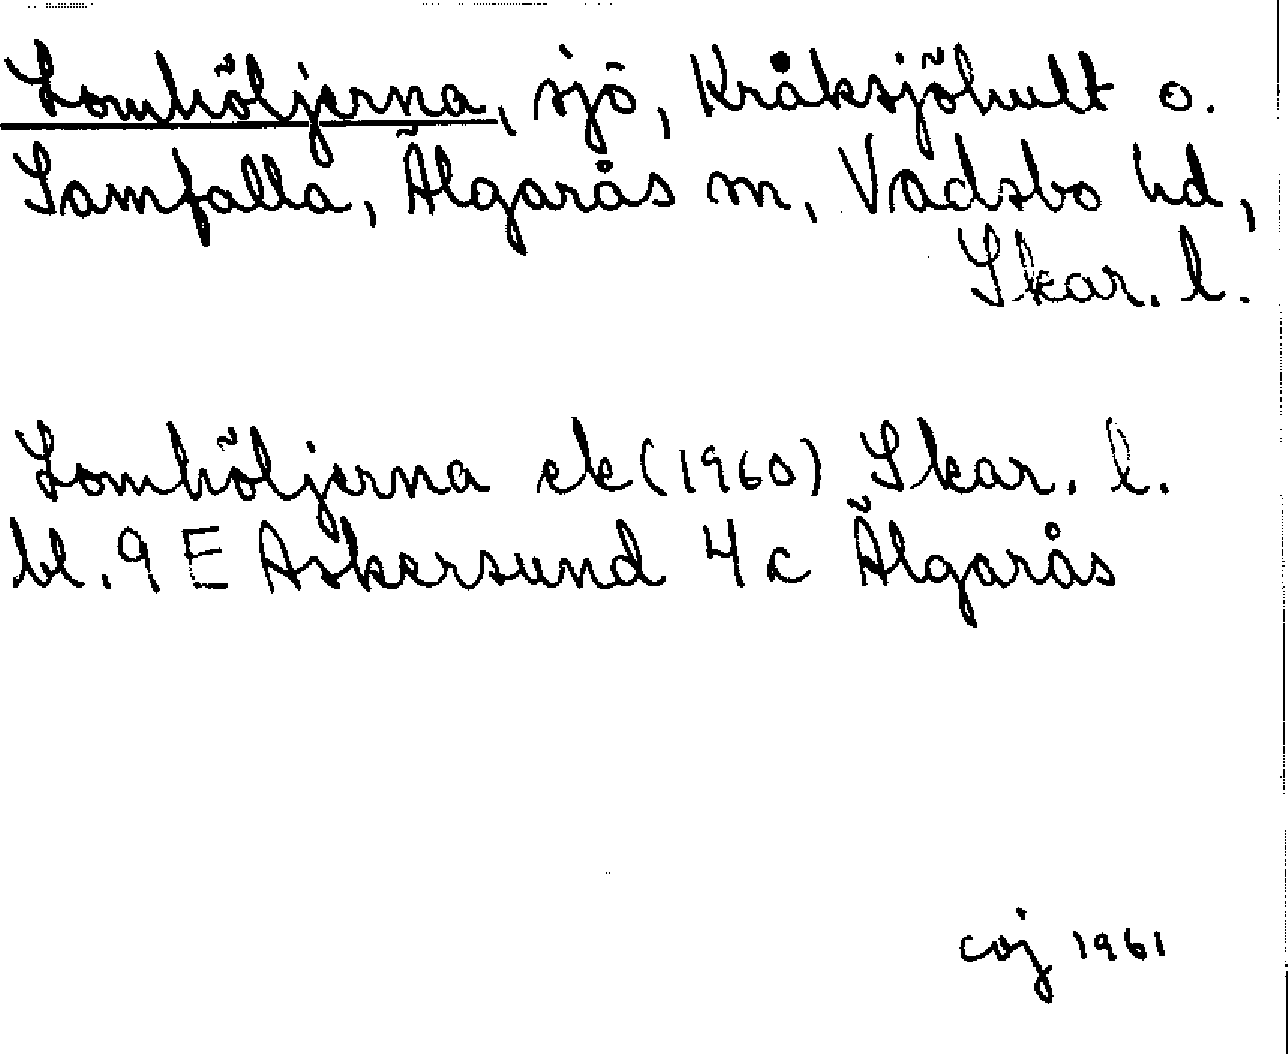 Lomhöljerna, sjö, Kråksjöhult o.
Samfalla, Älgarås sn, Vadsbo hd,
Skar. l.
Lomhöljerna ek (1960) Skar. l.
bl. 9 E Askersund 4 c Älgarås
coj 1961